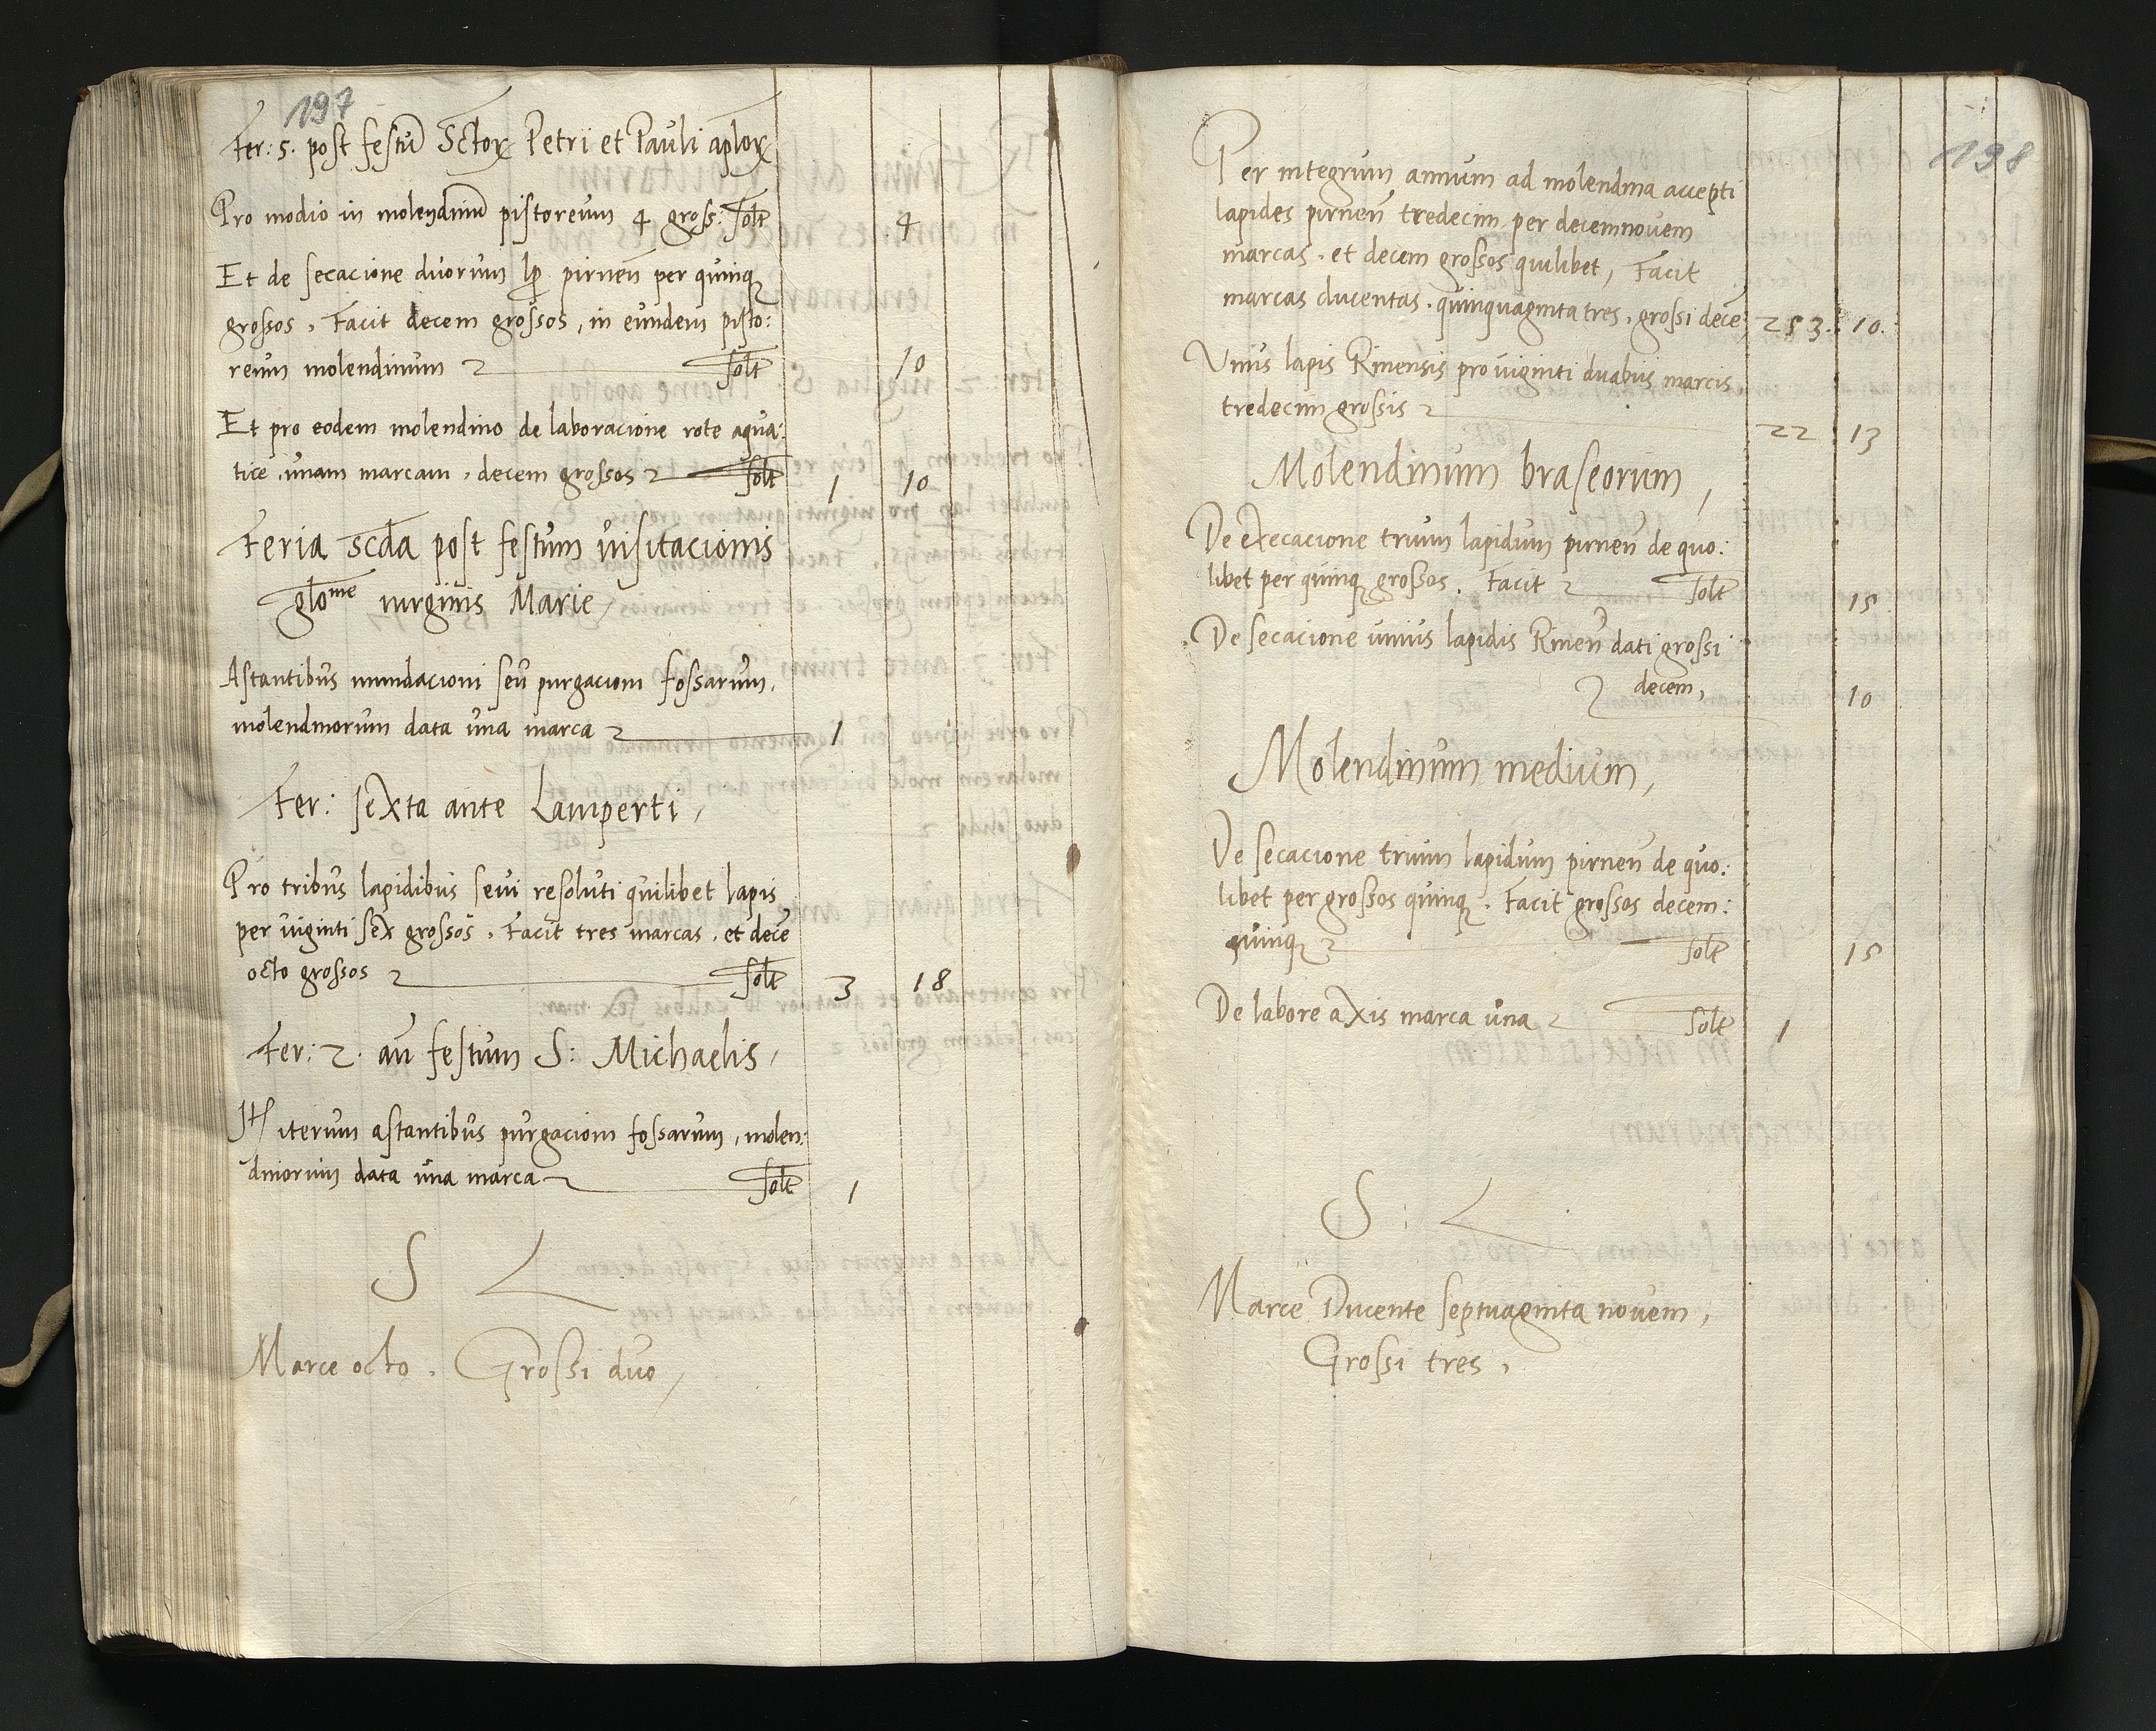 197
Fer: 5. post festũ Sctoꝝ Petri et Pauli aploꝝ
Pro modio in molendinũ pistoreum 4 gross: Solt 4
Et de secacione duorum lp pirnen̄ per quinqꝫ
grossos, Facit decem grossos, in eundem pisto:
reum molendinum Solt 10
Et pro eodem molendino de laboracione rote aqua:
tice, unam marcam, decem grossos Solt 1 10
Feria scda post festum visitacionis
glome virginis Marie,
Astantibus mundacioni seu purgacioni fossarum,
molendinorum data una marca 1
Fer: sexta ante Lamperti,
Pro tribus lapidibus sevi resoluti quilibet lapis
per viginti sex grossos, Facit tres marcas, et decē
octo grossos Solt 3 18
Fer: 2. an̄ festum S: Michaelis,
Itꝭ iterum astantibus purgacioni fossarum, molen:
dinorum data una marca Solt 1
S L
Marce octo, Grossi duo,
198
Per integrum annum ad molendina accepti
lapides pirnen̄ tredecim, per decemnovem
marcas, et decem grossos quilibet, Facit
marcas ducentas, quinquaginta tres, grossi decē 253. 10.
Unus lapis Rinensis pro viginti duabus marcis
tredecim grossis 22 13
Molendinum braseorum,
De execacione trium lapidum pirnen̄ de quo:
libet per quinqꝫ grossos, Facit Solt 15
De secacione unius lapidis Rinen̄ dati grossi
decem, 10
Molendinum medium,
De secacione trium lapidum pirnen̄ de quo:
libet per grossos quinqꝫ, Facit grossos decem:
quinqꝫ Solt 15
De labore axis marca una Solt 1
S: L
Marce Ducente septuaginta novem,
Grossi tres,